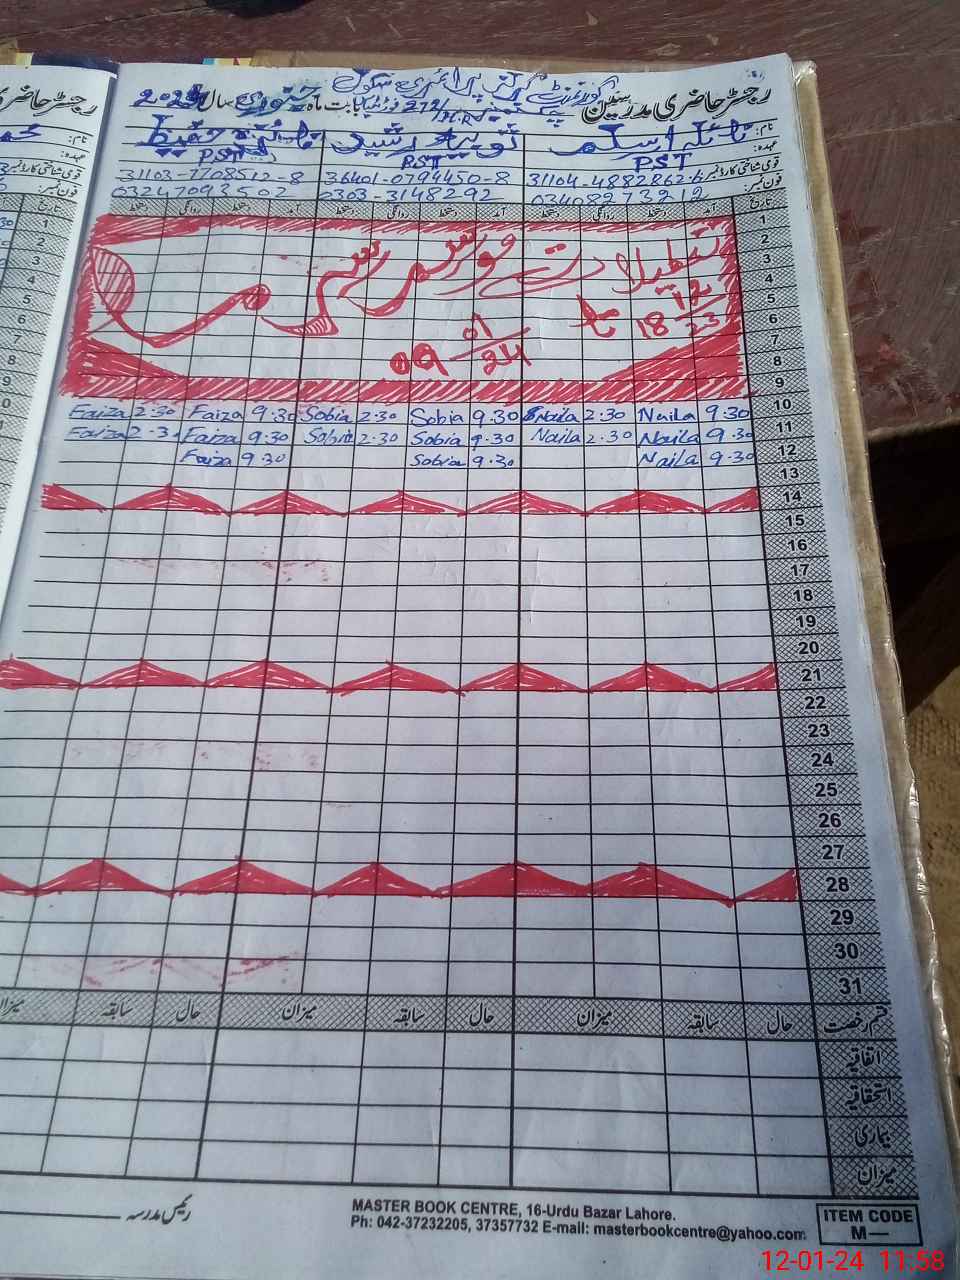 رجسٹر حاضری مدرسین گورنمنٹ گرلز پرائمری سکول 272/H.R بابت ماہ جنوری سال 2024
نام: نائلہ ارسلم ثوبیہ رشید فائزہ حفیظ
عہدہ: PST PST PST
قومی شناختی کارڈ نمبر 31104-4882862-6 36401-0794450-8 31103-7708512-8
فون نمبر: 03408273212 0303-3148292 03247093502
تاریخ آمد دستخط روانگی دستخط آمد دستخط روانگی دستخط آمد دستخط روانگی دستخط
1
2
3
4
5
6
7
8
9
تعطیلات موسم سرما
18 12/23 تا 09 01/24
10 9.30 Naila 2.30 Naila 9.30 Sobia 2.30 Sobia 9.30 Faiza 2.30 Faiza
11 9.30 Naila 2.30 Naila 9.30 Sobia 2.30 Sobia 9.30 Faiza 2.30 Faiza
12 9.30 Naila 9.30 Sobia 9.30 Faiza
13
14
15
16
17
18
19
20
21
22
23
24
25
26
27
28
29
30
31
قسم رخصت حال سابقہ میزان حال سابقہ میزان حال سابقہ میزان
اتفاقیہ
استحقاقیہ
بیماری
میزان
رئیس مدرسہ
MASTER BOOK CENTRE, 16-Urdu Bazar Lahore.
Ph: 042-37232205, 37357732 E-mail: masterbookcentre@yahoo.com
ITEM CODE
M—
12-01-24 11:58